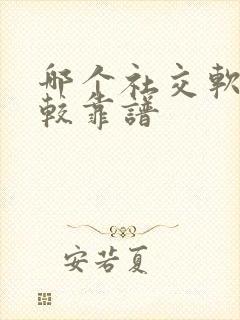 哪个社交軟
較靠譜
安若夏